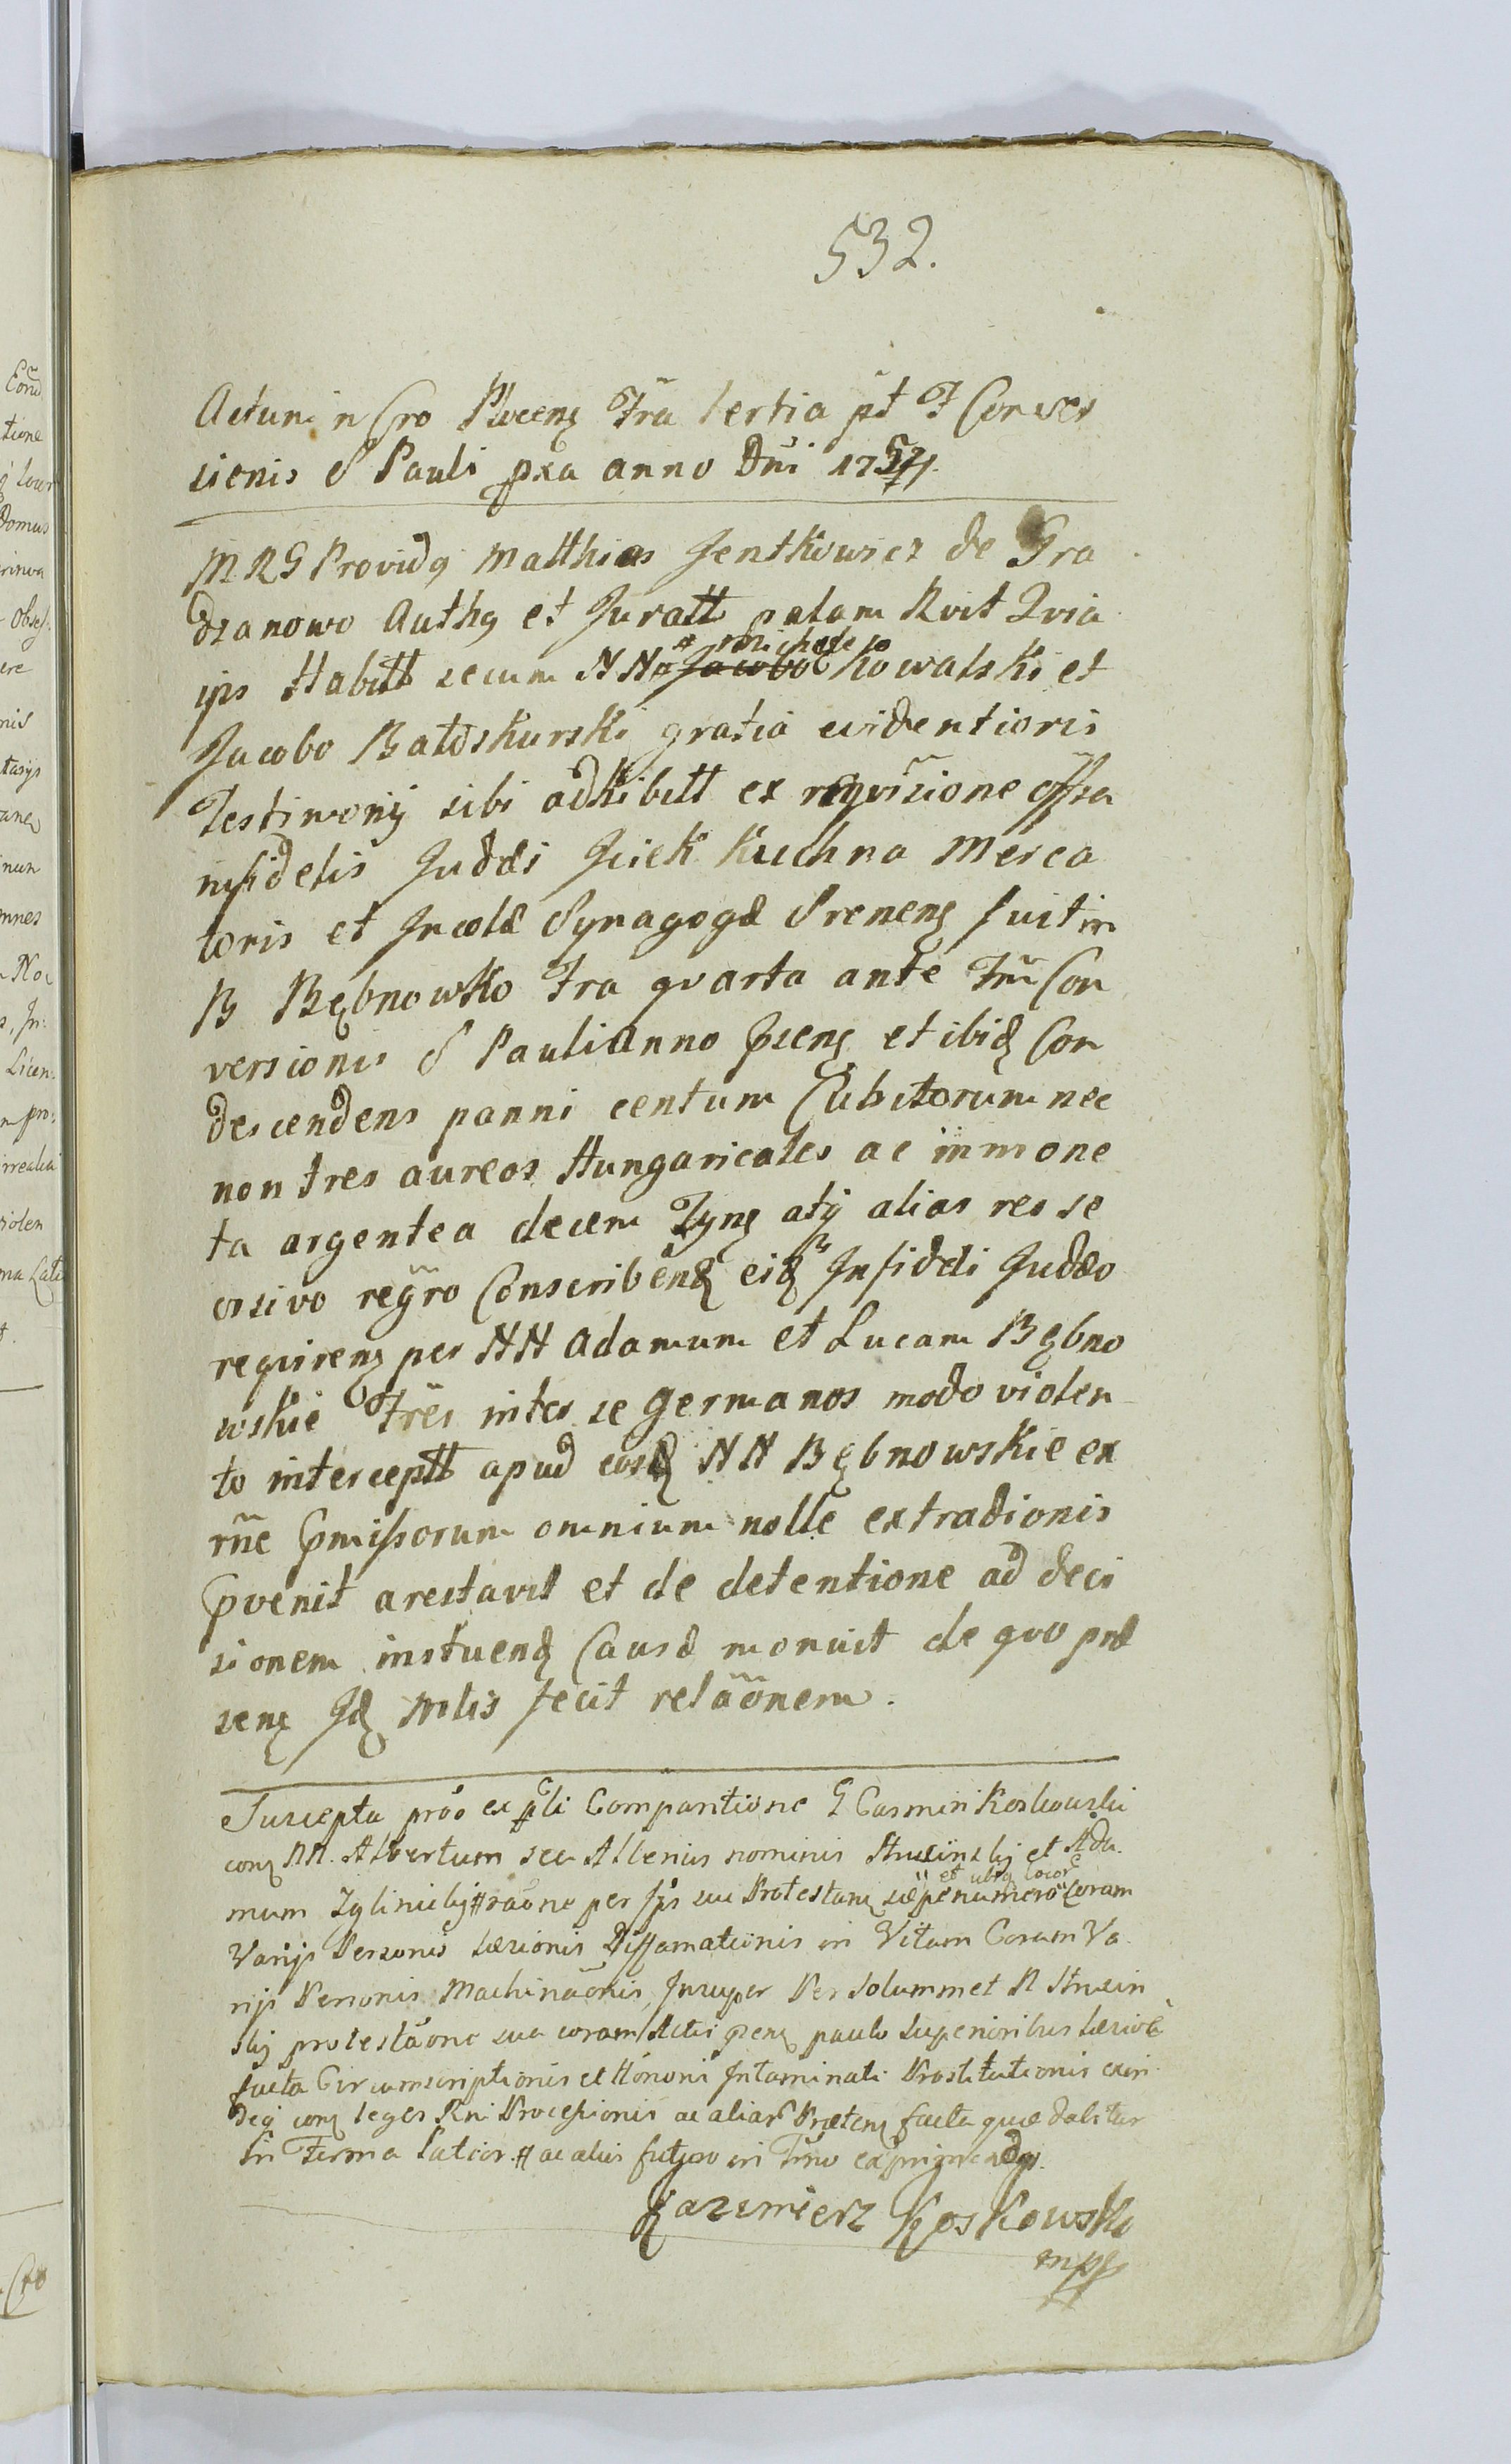 532.
Actum in Cro Plocenȝ Fra tertia pt F Conver
sionis S Pauli pxa anno Dni 1757
MRG Providq Matthias Jentkowicz de Gra
dzanowo Authq et Juratt palam Rvit Qvia
ips Habitt secum NN Michaele Kowalski et
Jacobo Batoskurski gratia evidentioris
Testimonij sibi adhibitt ex reqvisione offsa
infidelis Judæi Jcick Kuchna Merca
toris et Jncolæ Synagogæ Srenenȝ fuit in
B Bębnowko Fra qvarta ante Fm Con
versionis S Pauli Anno Psenȝ et ibiȝ Con
descendens panni centum Cubitorum nec
non tres aureos Hungaricales ac in mone
ta argentea decem Tynȝ atq alias res se
orsivo regro Conscribendȝ eiȝ Jnfideli Judæo
reqvirenȝ per NN Adamum et Lucam Bębno
wskie Fres inter se germanos modo violen
to interceptt apud eosȝ NN Bębnowskie ex
rne Pmissorum omnium nolle extradionis
Pvenit arestavit et de detentione ad deci
sionem instuendȝ Causæ monuit de qvo præ
senȝ Jdȝ Mlis fecit relaonem.
Suscepta proo ex pli Comparitione G Casmiri Koskowski
conȝ NN. Albertum seu Allerius nominis Strusinskj et Ada
mum Zglinickj # raone per Jps sue Protestanȝ sæpenumero et ubiq locor Coram
Varijs Personis Læsionis Diffamationis in Vitam Coram Va
rijs Personis Machinaonis, Jnsuper Per solummet N Strusin
skj protestaone sua coram Actis Psenȝ paulo superioribus læsive
facta Circumscriptionis et Honoris Jntaminati Prostitutionis exin
deq conȝ leges Rni Processionis ac aliar Prætenȝ facta quæ dabitur
in Forma Latior. # ac aliis futuro in Tmo exprimendis.
Kazimierz Koskowski
mpp